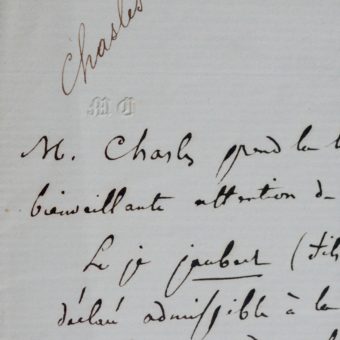 Chasles
M. Chasles prend la l
bienveillante attention de
Le je joubert (fils
déclaré admissible à la